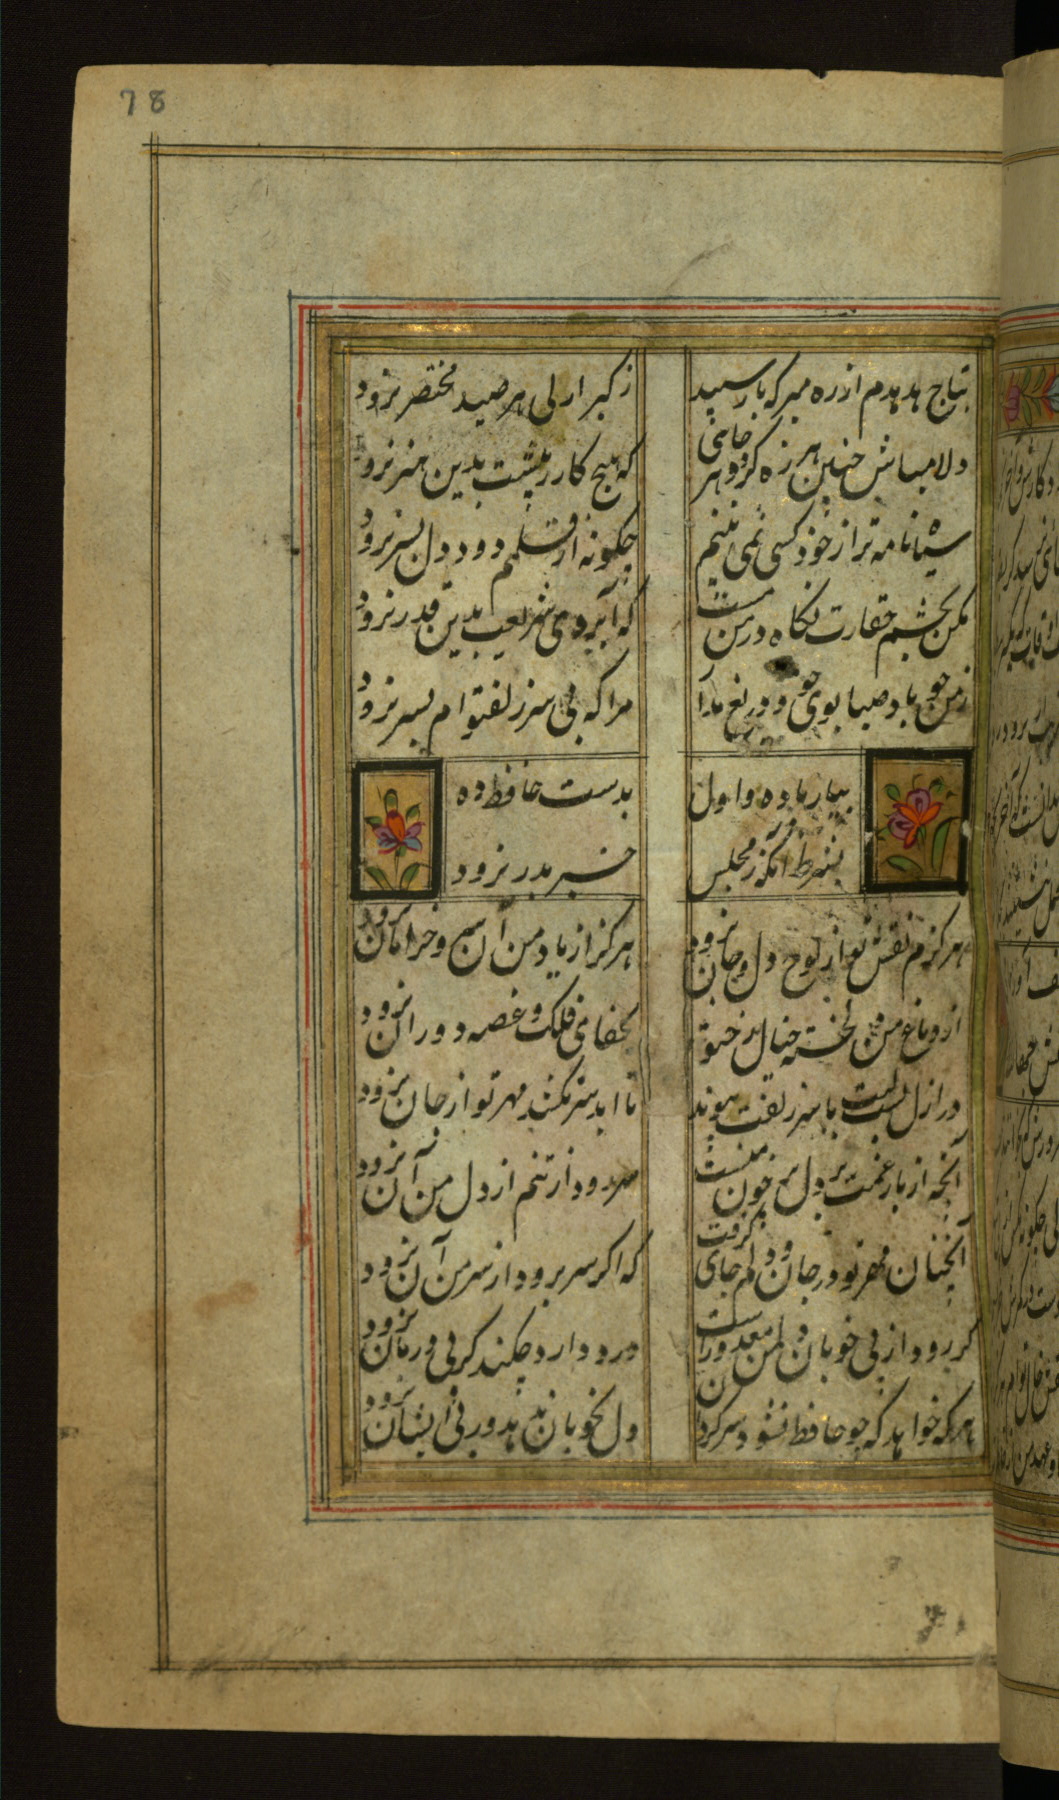 78
بتاج هدهدم از ره مبر که باز سپید
ز کبر از پی هر صید مختصر نرود
دلا مباش چنین هرزه گرد و هرجائی
که هیچ کار ز پیشت بدین هنر نرود
سیاه نامه تر از خود کسی نمی بینم
چگونه از قلمم دود دل بسر نرود
مکن بچشم حقارت نگاه در من مست
که آبروی شریعت بدین قدر نرود
ز من چو باد صبا بوی خود دریغ مدار
مرا که بی سر زلف توام بسر نرود
بیار باده و اول
بدست حافظ ده
بشرط آنکه ز مجلس
خبر بدر نرود
هرگزم نقش تو از لوح دل و جان نرود
هرگز از یاد من آن سرو خرامان نرود
از دماغ من سرگشته خیال رخ تو
بجفای فلک و غصه دوران نرود
در ازل بست دلم با سر زلفت پیوند
تا ابد سر نکشد مهر تو از جان نرود
آنچه از بار غمت بر دل پر خون منست
برود از تنم از دل من آن نرود
آنچنان مهر تو در جان و دلم جای گرفت
که اگر سر برود از سر من آن نرود
گر رود از پی خوبان دل من معذورست
درد دارد چکند کز پی درمان نرود
هر که خواهد که چو حافظ نشود سرگردان
دل بخوبان ندهد وز پی ایشان نرود